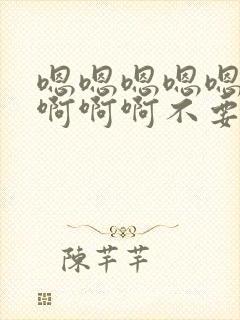 嗯嗯嗯嗯嗯
啊啊啊不要
陈芊芊